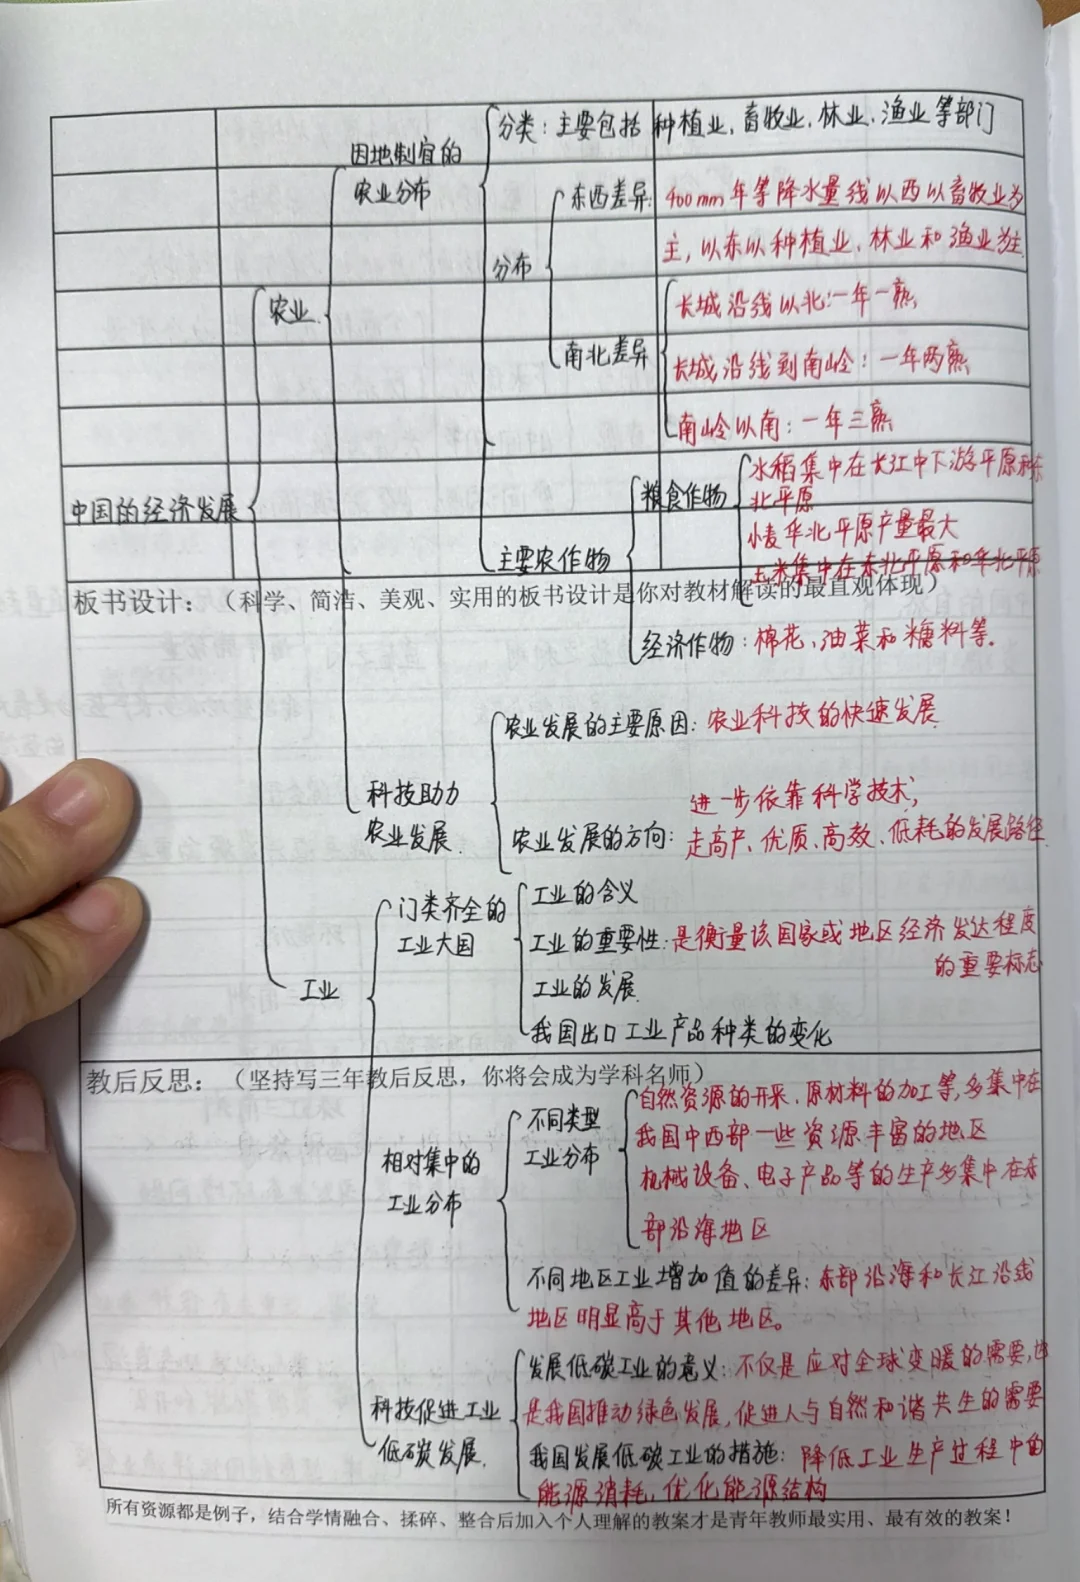 分类：主要包括 种植业、畜牧业、林业、渔业等部门
因地制宜的
农业分布
东西差异：400mm年等降水量线以西以畜牧业为
主，以东以种植业、林业和渔业为主
分布
农业
长城沿线以北：一年一熟
南北差异
长城沿线到南岭：一年两熟
南岭以南：一年三熟
水稻集中在长江中下游平原和东
粮食作物
北平原
中国的经济发展
小麦华北平原产量最大
主要农作物
玉米集中在东北平原和华北平原
板书设计：（科学、简洁、美观、实用的板书设计是你对教材解读的最直观体现）
经济作物：棉花、油菜和糖料等.
农业发展的主要原因：农业科技的快速发展
科技助力
农业发展
进一步依靠科学技术，
农业发展的方向：走高产、优质、高效、低耗的发展路径
门类齐全的
工业大国
工业的含义
工业的重要性：是衡量该国家或地区经济发达程度
的重要标志
工业
工业的发展
我国出口工业产品种类的变化
教后反思：（坚持写三年教后反思，你将会成为学科名师）
自然资源的开采、原材料的加工等，多集中在
不同类型
工业分布
我国中西部一些资源丰富的地区
相对集中的
工业分布
机械设备、电子产品等的生产多集中在东
部沿海地区
不同地区工业增加值的差异：东部沿海和长江沿线
地区明显高于其他地区。
发展低碳工业的意义：不仅是应对全球变暖的需要，也
科技促进工业
低碳发展
是我国推动绿色发展，促进人与自然和谐共生的需要
我国发展低碳工业的措施：降低工业生产过程中的
能源消耗，优化能源结构
所有资源都是例子，结合学情融合、揉碎、整合后加入个人理解的教案才是青年教师最实用、最有效的教案！